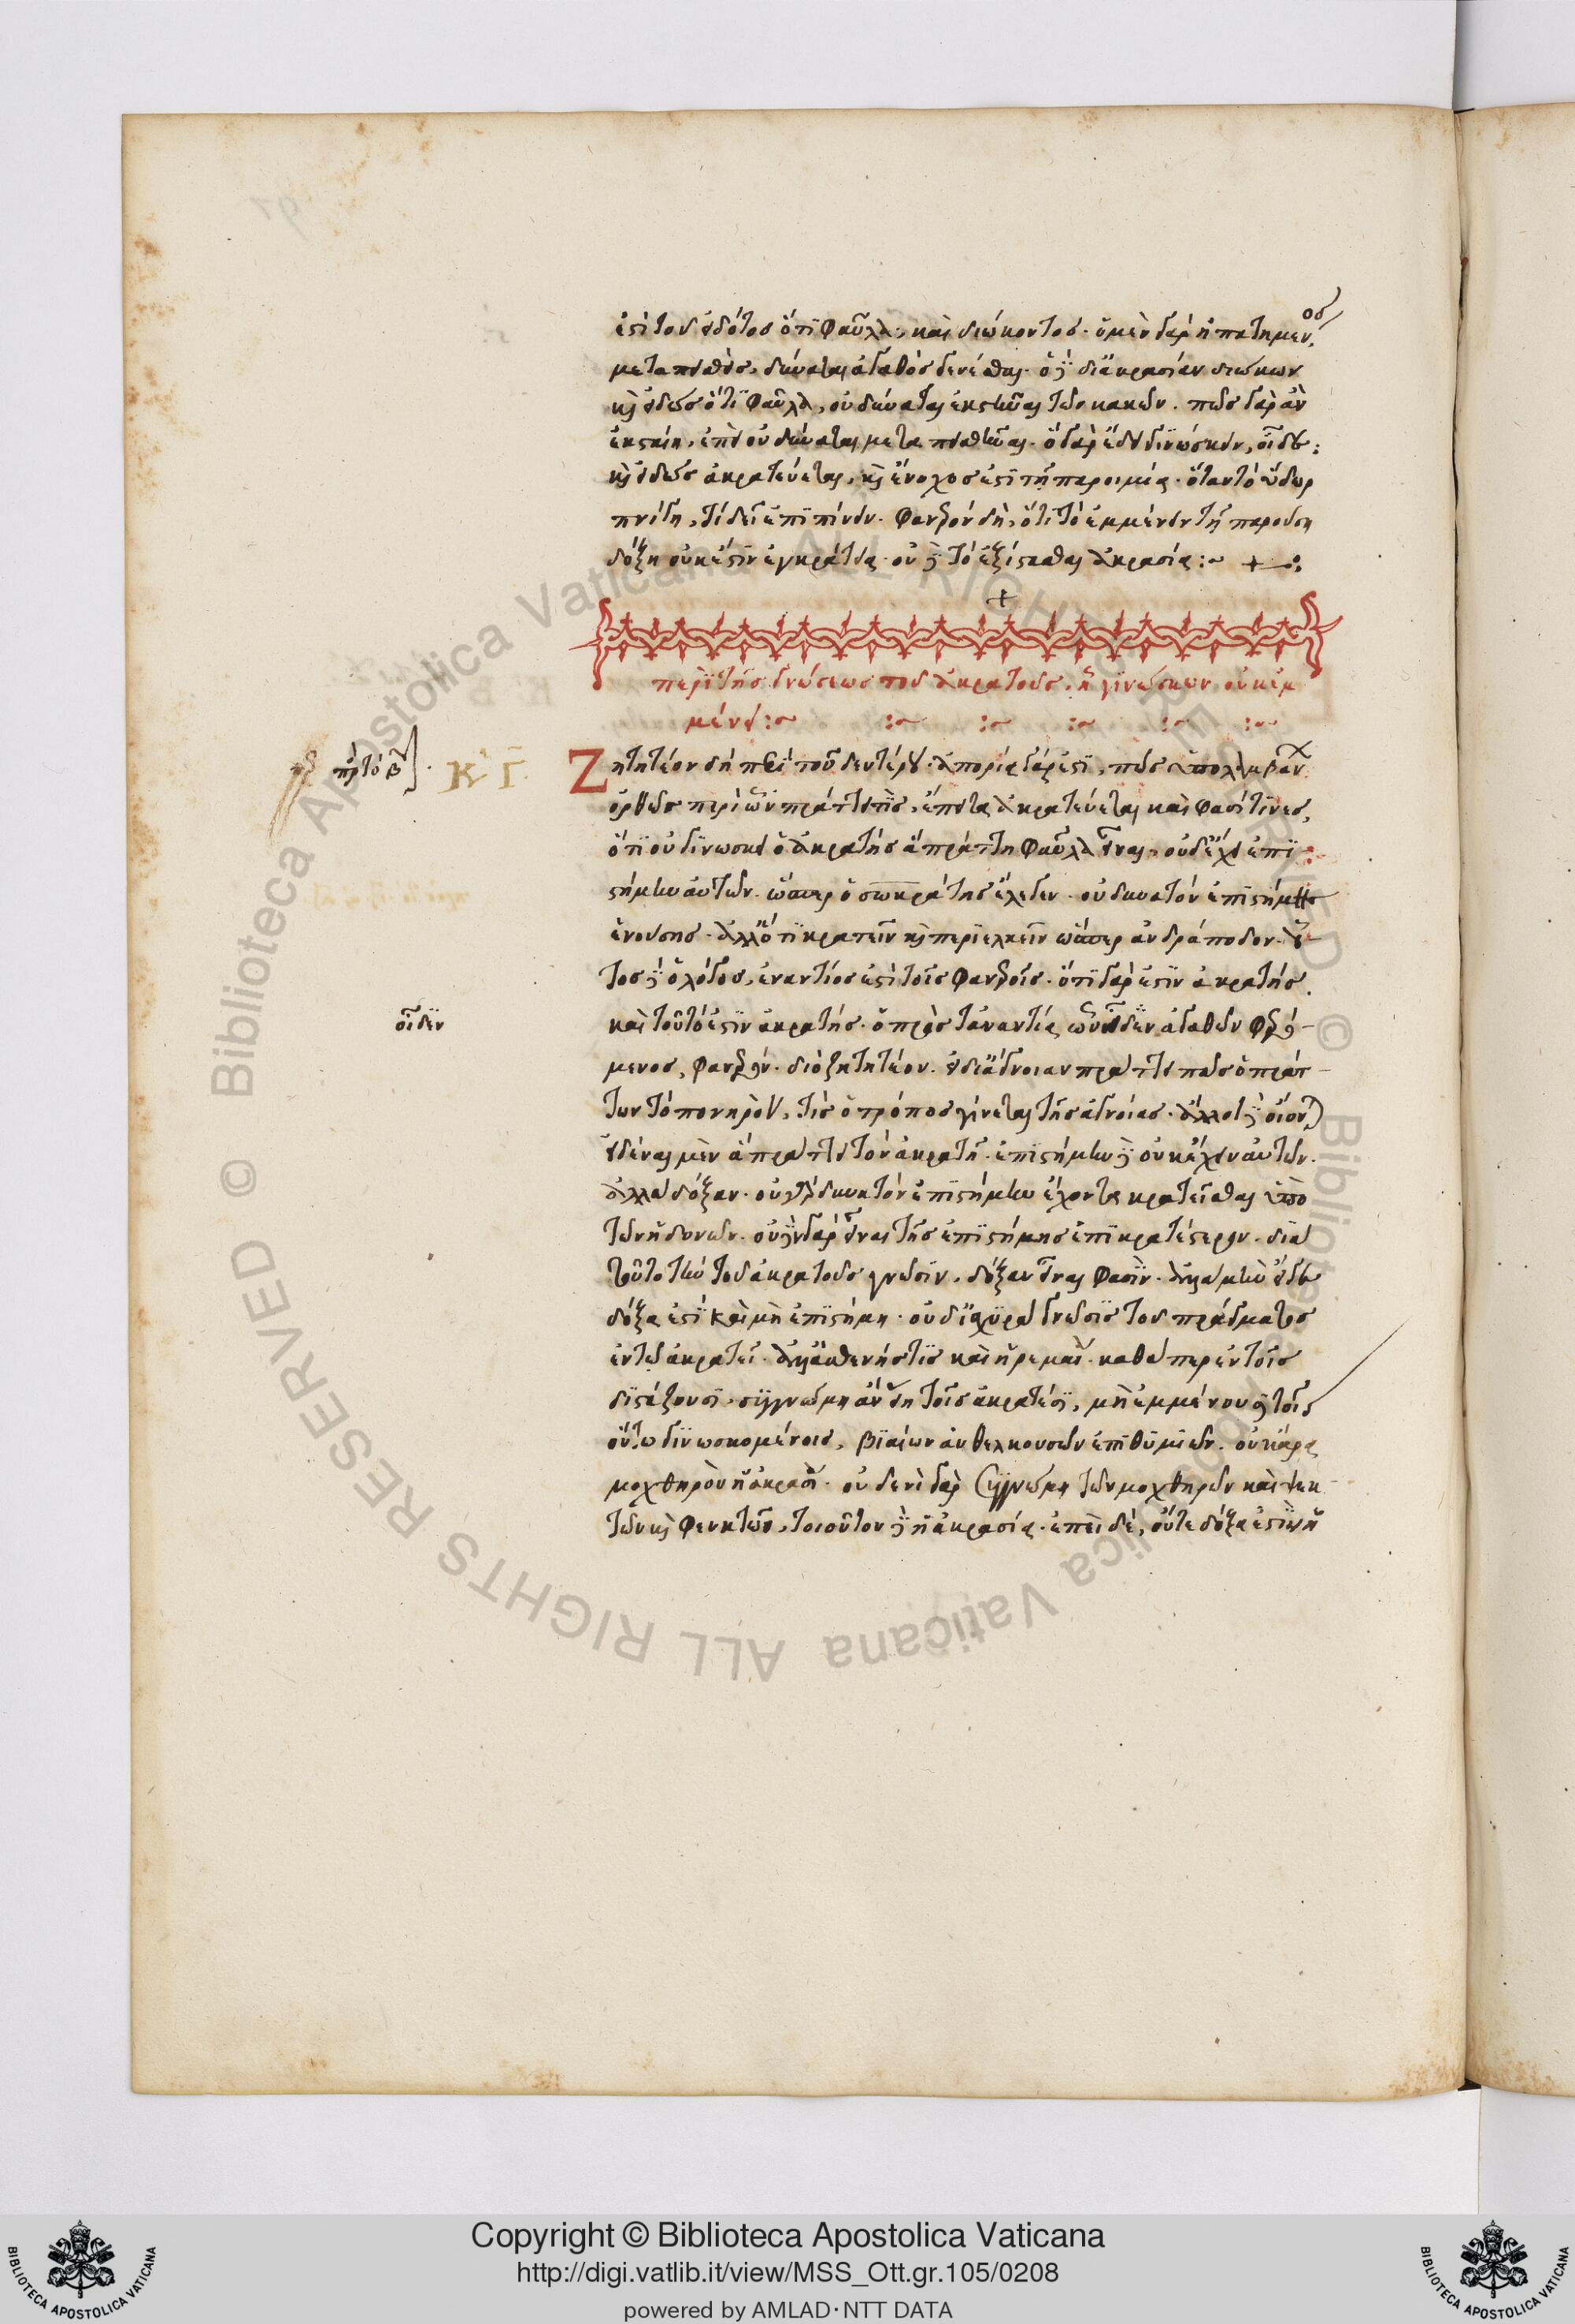 ἐστὶ τοῦ εἰδότος ὅτι φαῦλα, καὶ διώκοντος. ὁ μὲν γὰρ ἠπατημένος,
μεταπεισθεὶς, δύναται ἀγαθὸς γενέσθαι. ὁ δὲ δι' ἀκρασίαν διώκων
καὶ εἰδὼς ὅτι φαῦλα, οὐ δύναται ἐκστῆναι τῶν κακῶν. πῶς γὰρ ἂν
ἐκσταίη, ἐπεὶ οὐ δύναται μεταπεισθῆναι. ὃ γὰρ ἔδει γινώσκειν, οἶδε:
καὶ εἰδὼς ἀκρατεύεται, καὶ ἔνοχος ἐστὶ τῇ παροιμίᾳ. ὅταν τὸ ὕδωρ
πνίγῃ, τί δεῖ ἐπιπίνειν. φανερὸν δὴ, ὅτι τὸ ἐμμένειν τῇ παρούσῃ
δόξῃ οὐκ ἔστιν ἐγκράτεια. οὐδὲ τὸ ἐξίστασθαι ἀκρασία:~ +
περὶ τῆς γνώσεως τοῦ ἀκρατοῦς, ᾗ γινώσκων οὐκ ἐμ
μένει:~ :~ :~ :~ :~ :~
πρὸς τὸ β
Κ Γ
Ζητητέον δὴ περὶ τοῦ δευτέρου. ἀπορία γάρ ἐστι, πῶς ὑπολαμβάνων
ὀρθῶς περὶ ὧν πράττει τὶς, ἔπειτα ἀκρατεύεται καὶ φασί τινες,
ὅτι οὐ γινώσκει ὁ ἀκρατὴς ἃ πράττῃ φαῦλα εἶναι, οὐδ' ἔχει ἐπι
στήμην αὐτῶν. ὥσπερ ὁ σωκράτης ἔλεγεν. οὐ δυνατὸν ἐπιστήμης
ἐνούσης. ἄλλό τι κρατεῖν καὶ περιέλκειν ὥσπερ ἀνδράποδον. οὗ
τος δὲ ὁ λόγος, ἐναντίος ἐστὶ τοῖς φανεροῖς. ὅτι γὰρ ἐστὶν ἀκρατὴς.
οἶδεν
καὶ τοῦτό ἐστιν ἀκρατής. ὁ πρὸς τἀναντία ὧν οἶδεν ἀγαθῶν φερό
μενος, φανερόν. διὸ ζητητέον. εἰ δι' ἄγνοιαν πράττει πᾶς ὁ πράτ
των τὸ πονηρὸν, τίς ὁ τρόπος γίνεται τῆς ἀγνοίας. ἄλλοι δὲ οἴονται
εἰδέναι μὲν ἃ πράττει τὸν ἀκρατῆ. ἐπιστήμην δὲ οὐκ ἔχειν αὐτῶν.
ἀλλὰ δόξαν. οὐ γὰρ δυνατὸν ἐπιστήμην ἔχοντα κρατεῖσθαι ὑπὸ
τῶν ἡδονῶν. οὐδὲν γὰρ εἶναι τῆς ἐπιστήμης ἐπικρατέστερον. διὰ
τοῦτο τὴν τοῦ ἀκρατοῦς γνῶσιν, δόξαν εἶναι φασὶν. ἀλλὰ μὴν εἴγε
δόξα ἐστὶ καὶ μὴ ἐπιστήμη. οὐδ' ἰσχυρὰ γνῶσις τοῦ πράγματος
ἐν τῷ ἀκρατεῖ. ἀλλ' ἀσθενής τις καὶ ἠρεμαία. καθάπερ ἐν τοῖς
διστάζουσι, συγγνώμη ἂν εἴη τοῖς ἀκρατέσι, μὴ ἐμμένουσι τοῖς
οὕτω γινωσκομένοις, βιαίων ἀνθελκουσῶν ἐπιθυμιῶν. οὐκ ἄρα
μοχθηρὸν ἡ ἀκρασία. οὐδενὶ γὰρ συγγνώμη τῶν μοχθηρῶν καὶ ψεκ
τῶν καὶ φευκτῶν, τοιοῦτον δὲ ἡ ἀκρασία. ἐπεὶ δὲ, οὔτε δόξα ἐστὶν ἡ
Copyright © Biblioteca Apostolica Vaticana
http://digi.vatlib.it/view/MSS_Ott.gr.105/0208
powered by AMLAD·NTT DATA
BIBLIOTECA APOSTOLICA VATICANA
BIBLIOTECA APOSTOLICA VATICANA
© Biblioteca Apostolica Vaticana ALL RIGHTS RESERVED